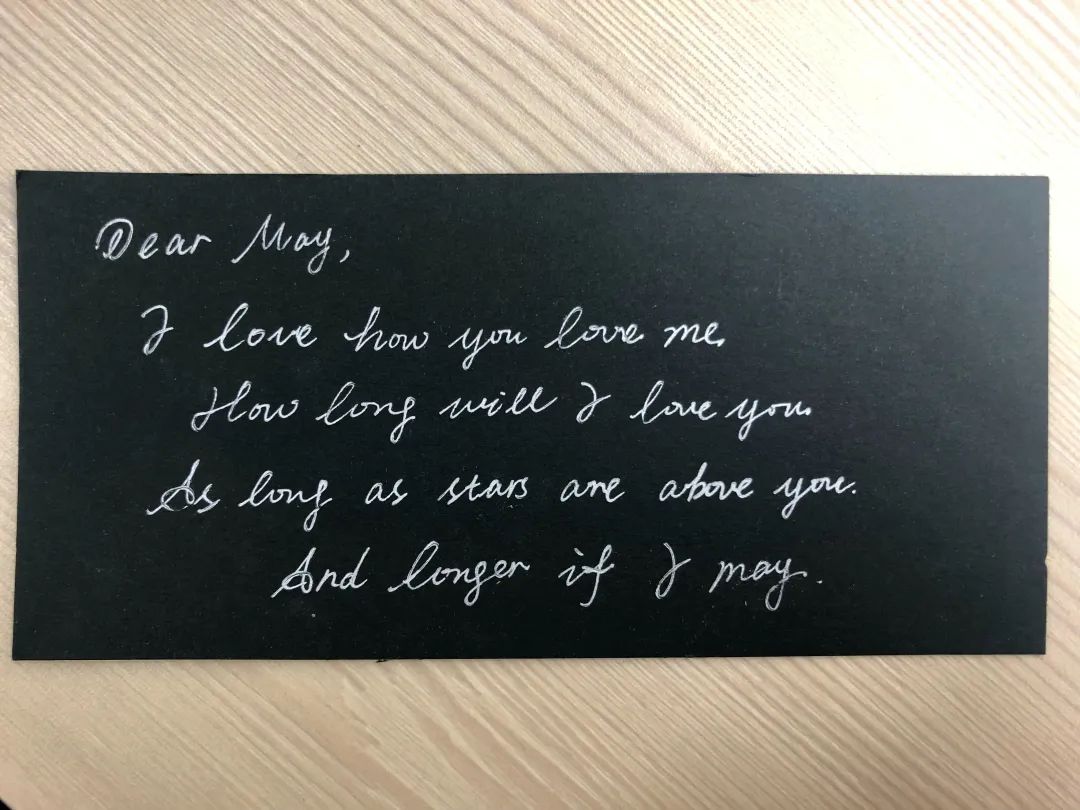 Dear May,
I love how you love me.
How long will I love you.
As long as stars are above you.
And longer if I may.